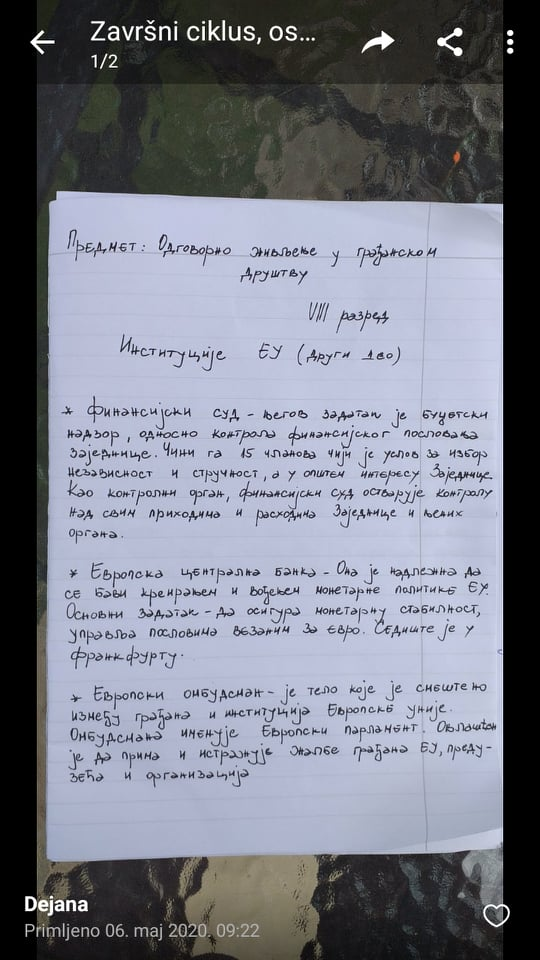 Završni ciklus, os...
1/2
Предмет: Одговорно живљење у грађанском
друштву
VIII разред
Институције ЕУ (други део)
* Финансијски суд - његов задатак је буџетски
надзор, односно контрола финансијског пословања
Заједнице. Чини га 15 чланова чији је услов за избор
независност и стручност, а у општем интересу Заједнице.
Као контролни орган, финансијски суд остварује контролу
над свим приходима и расходима Заједнице и њених
органа.
* Европска централна банка - Она је надлежна да
се бави креирањем и вођењем монетарне политике ЕУ.
Основни задатак - да осигура монетарну стабилност,
управља пословима везаним за евро. Седиште је у
Франкфурту.
* Европски омбудсман - је тело које је смештено
између грађана и институција Европске уније.
Омбудсмана именује Европски парламент. Овлашћен
је да прима и истражује жалбе грађана ЕУ, преду-
зећа и организација
Dejana
Primljeno 06. maj 2020. 09:22